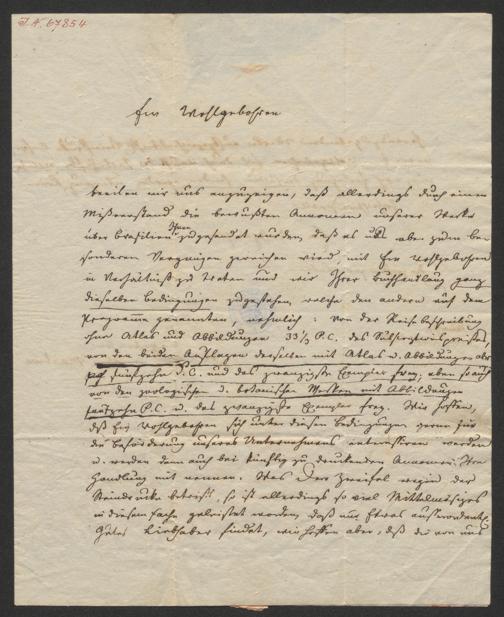 I.N. 67854
Euer Wohlgebohren
beeilen wir uns anzuzeigen, daß allerdings durch einen
Mißverstand die bewußten Annoncen unserer Werke
über Brasilien Ihnen zugesendet wurden, daß es uns aber zum be-
sonderen Vergnügen gereichen wird, mit Euer Wohlgebohren
in Verhältniß zu treten und wir Ihrer Buchhandlung ganz
dieselben Bedingungen zugestehen, welche den andern auf dem
Programm genannten, nehmlich: von der Reisebeschreibung
ohne Atlas und Abbildungen 33 1/3 P.C. des Subscriptionspreises,
von den beiden Auflagen derselben mit Atlas u. Abbildungen aber
fünfzehn P.C. und das zwanzigste Exemplar frey, eben so auch
von den zoologischen u. botanischen Werken mit Abbildungen
fünfzehn P.C. u. das zwanzigste Exemplar frey. Wir hoffen,
daß Euer Wohlgebohren sich unter diesen Bedingungen gerne für
die Beförderung unseres Unternehmens interessiren werden
u. werden dann auch bei künftig zu druckenden Annoncen Ihre
Handlung mit nennen. Was den Zweifel wegen der
Steindrucke betrifft, so ist allerdings so viel Mittelmäsiges
in diesem Fache geleistet worden, daß nur etwas ausserordentl.
Gutes Liebhaber findet, wir hoffen aber, daß die von uns